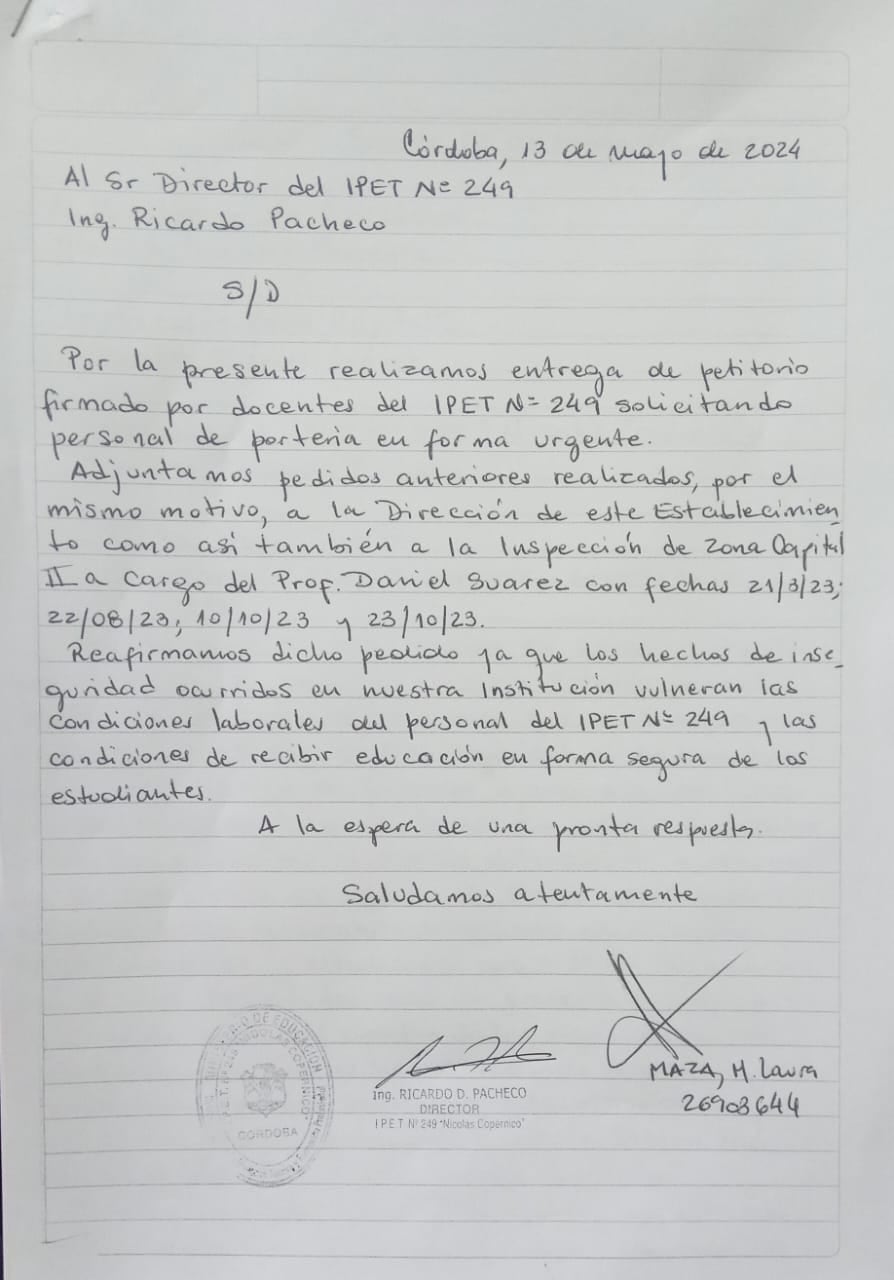 Córdoba, 13 de mayo de 2024
Al Sr Director del IPET Nº 249
Ing. Ricardo Pacheco
S/D
Por la presente realizamos entrega de petitorio
firmado por docentes del IPET Nº 249 solicitando
personal de portería en forma urgente.
Adjuntamos pedidos anteriores realizados, por el
mismo motivo, a la Dirección de este Establecimien
to como así también a la Inspección de Zona Capital
II a cargo del Prof. Daniel Suarez con fechas 21/3/23;
22/08/23; 10/10/23 y 23/10/23.
Reafirmamos dicho pedido ya que los hechos de inse_
guridad ocurridos en nuestra Institución vulneran las
condiciones laborales del personal del IPET Nº 249 y las
condiciones de recibir educación en forma segura de los
estudiantes.
A la espera de una pronta respuesta.
Saludamos atentamente
MAZA, M. Laura
26903644
Ing. RICARDO D. PACHECO
DIRECTOR
I.P.E.T Nº 249 "Nicolas Copernico"
DE EDUCACION
NICOLAS COPERNICO
CORDOBA